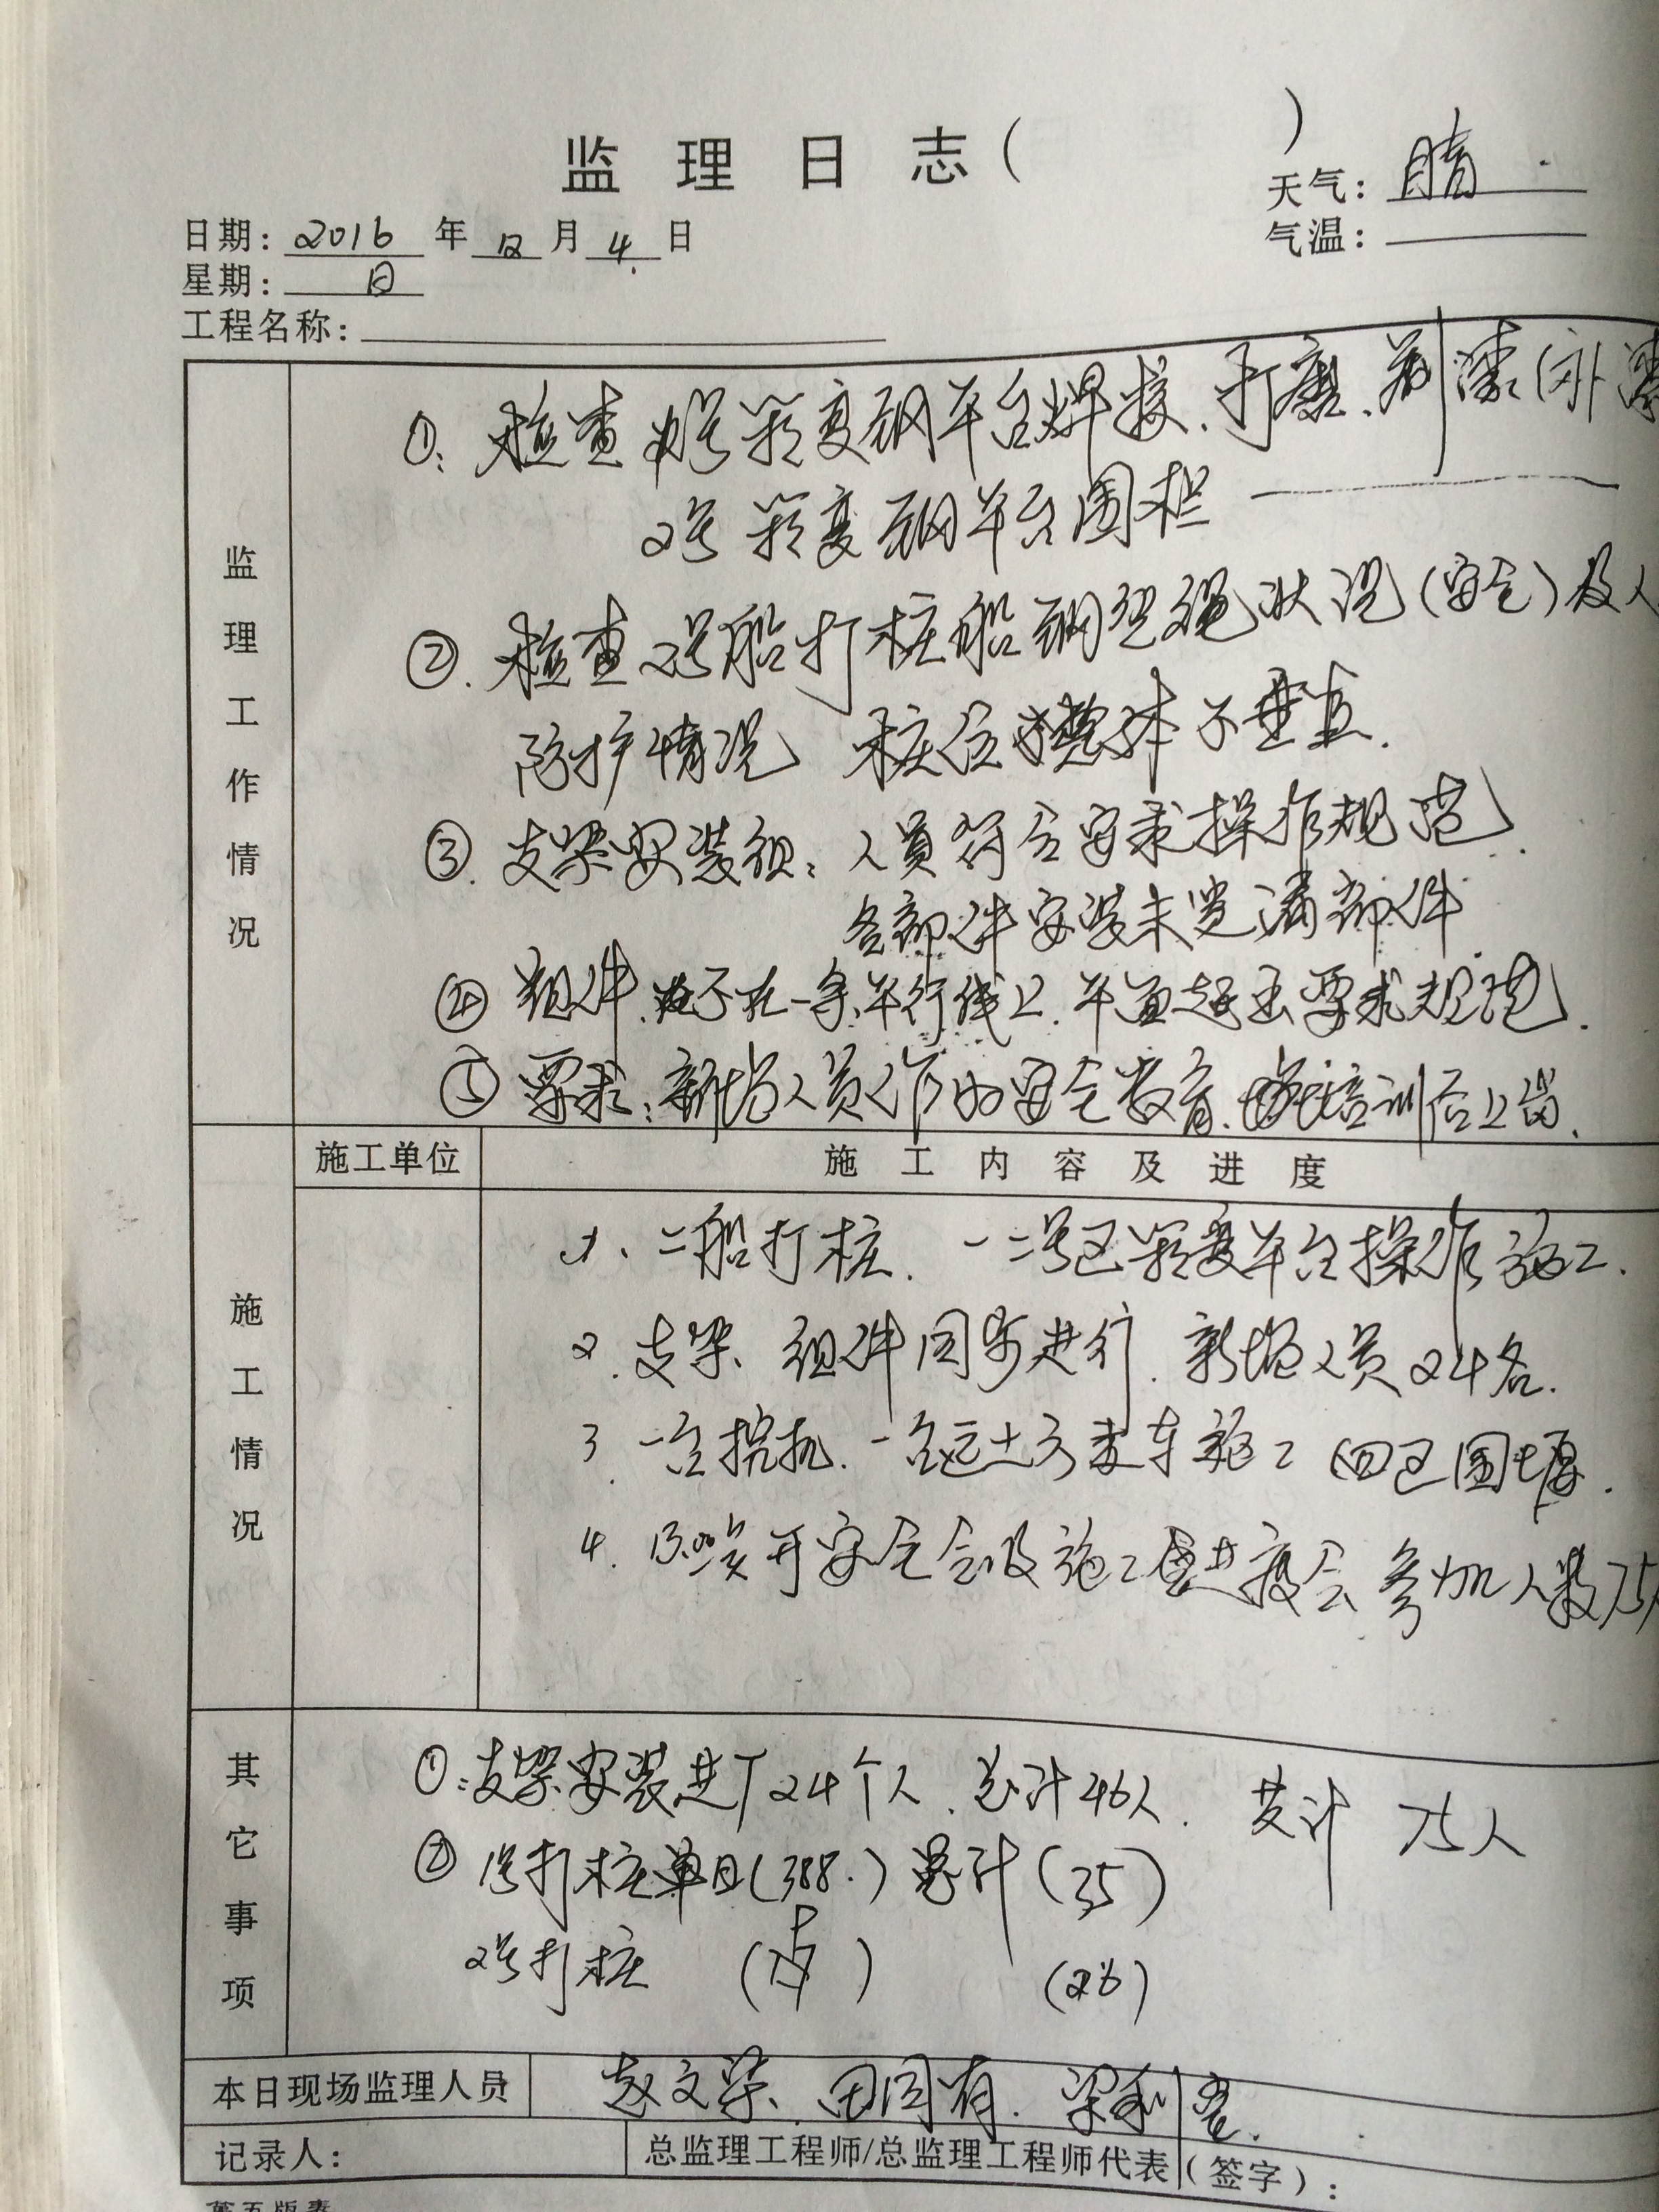 监理日志（ ）
天气：晴
日期：2016年12月4日
气温：
星期：日
工程名称：
监理工作情况
①：检查 号箱变钢平台焊接、打磨、刷漆（外漆
2号箱变钢平台围栏
②. 检查2号船打桩船钢丝绳状况（安全）及人
防护情况 桩位 整体不垂直.
③. 支架安装组：人员符合要求操作规范.
各部件安装未 漏部件.
④ 组件. 不在一条平行线上. 平直 要求规范.
⑤ 要求：新增人员作好安全教育. 培训后上岗.
施工单位
施工内容及进度
施工情况
1、二船打桩. 一二号区箱变平台操作施工.
2. 支架、组件同步进行. 新增人员24名.
3. 一台挖机. 一台运土方 车施工 四区围堰.
4. 开安全会及施工 进度会 参加人数75人
其它事项
①：支架安装进厂24个人. 总计46人. 共计 75人
② 1号打桩单日（388.）总计（35）
2号打桩 （ ） （26）
本日现场监理人员
赵文荣、田国有. 梁利 .
记录人：
总监理工程师/总监理工程师代表（签字）：
第五版表